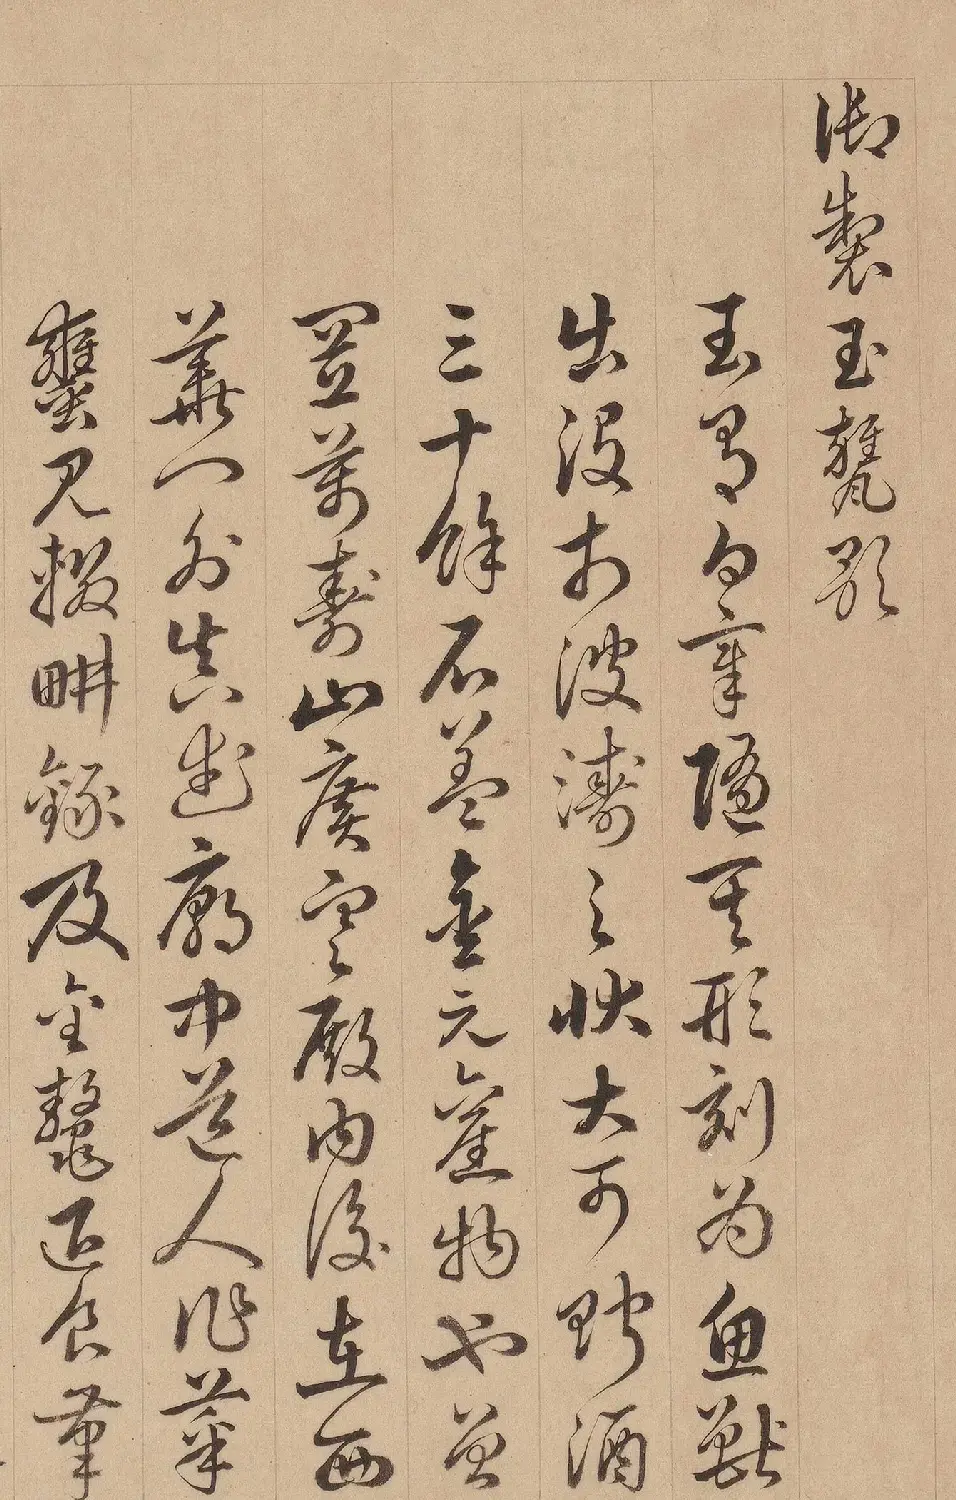 御製玉甕歌
玉有白章隨其形刻為魚獸
出沒於波濤之狀大可貯酒
三十餘石蓋金元舊物也曾
置萬壽山廣寒殿內後在西
華門外真武廟中道人作菜
甕見輟畊錄及金鰲退食筆